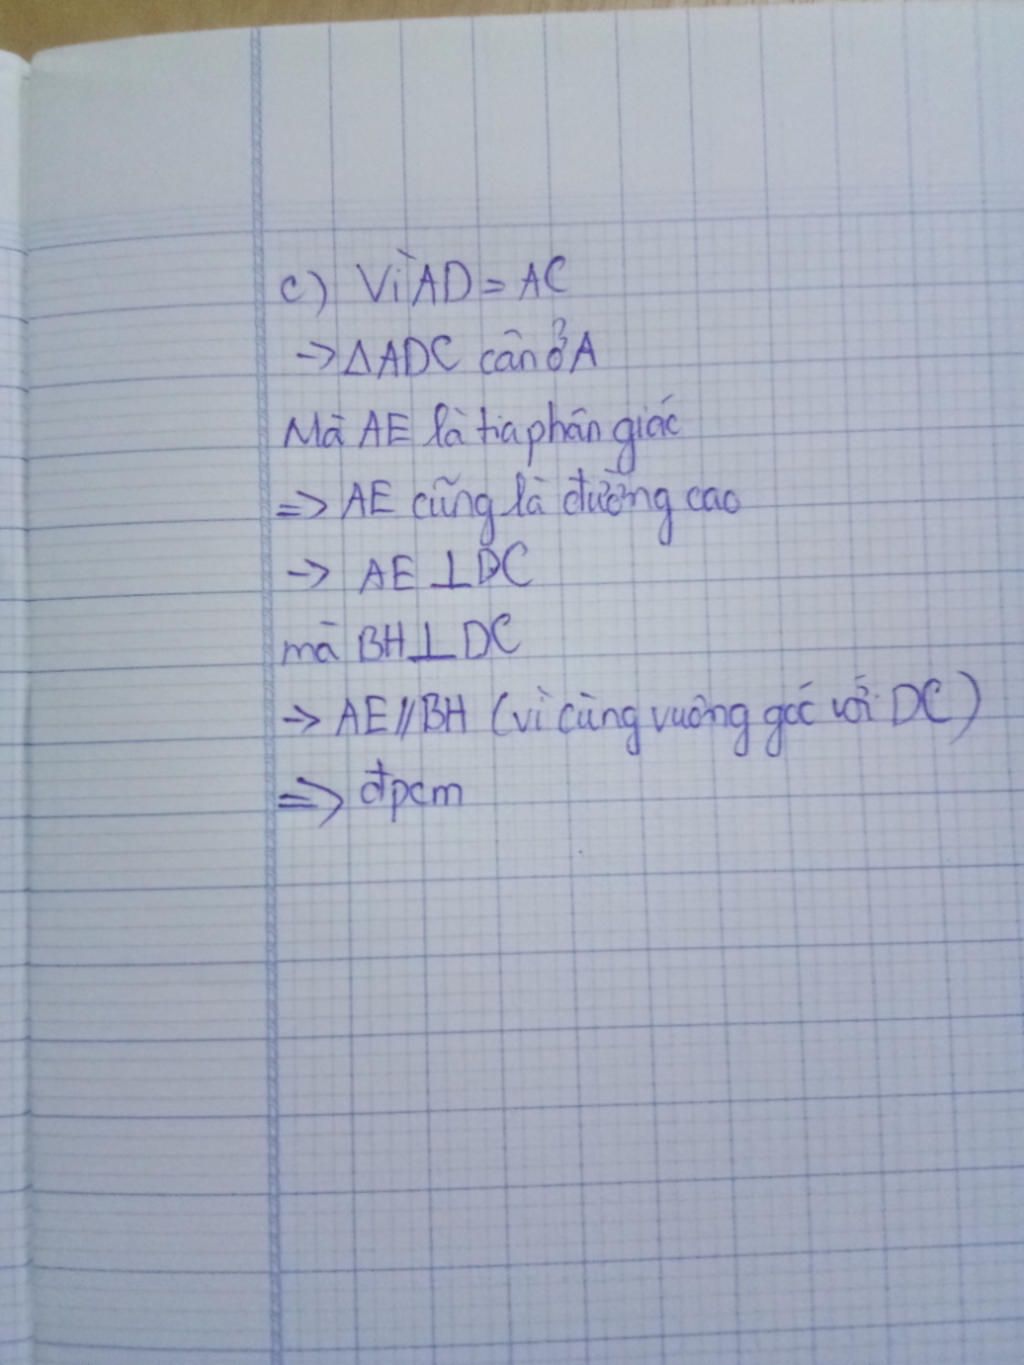 c) Vì AD = AC
-> △ADC cân ở A
Mà AE là tia phân giác
=> AE cũng là đường cao
-> AE ⊥ DC
mà BH ⊥ DC
-> AE // BH (vì cùng vuông góc với DC)
=> đpcm